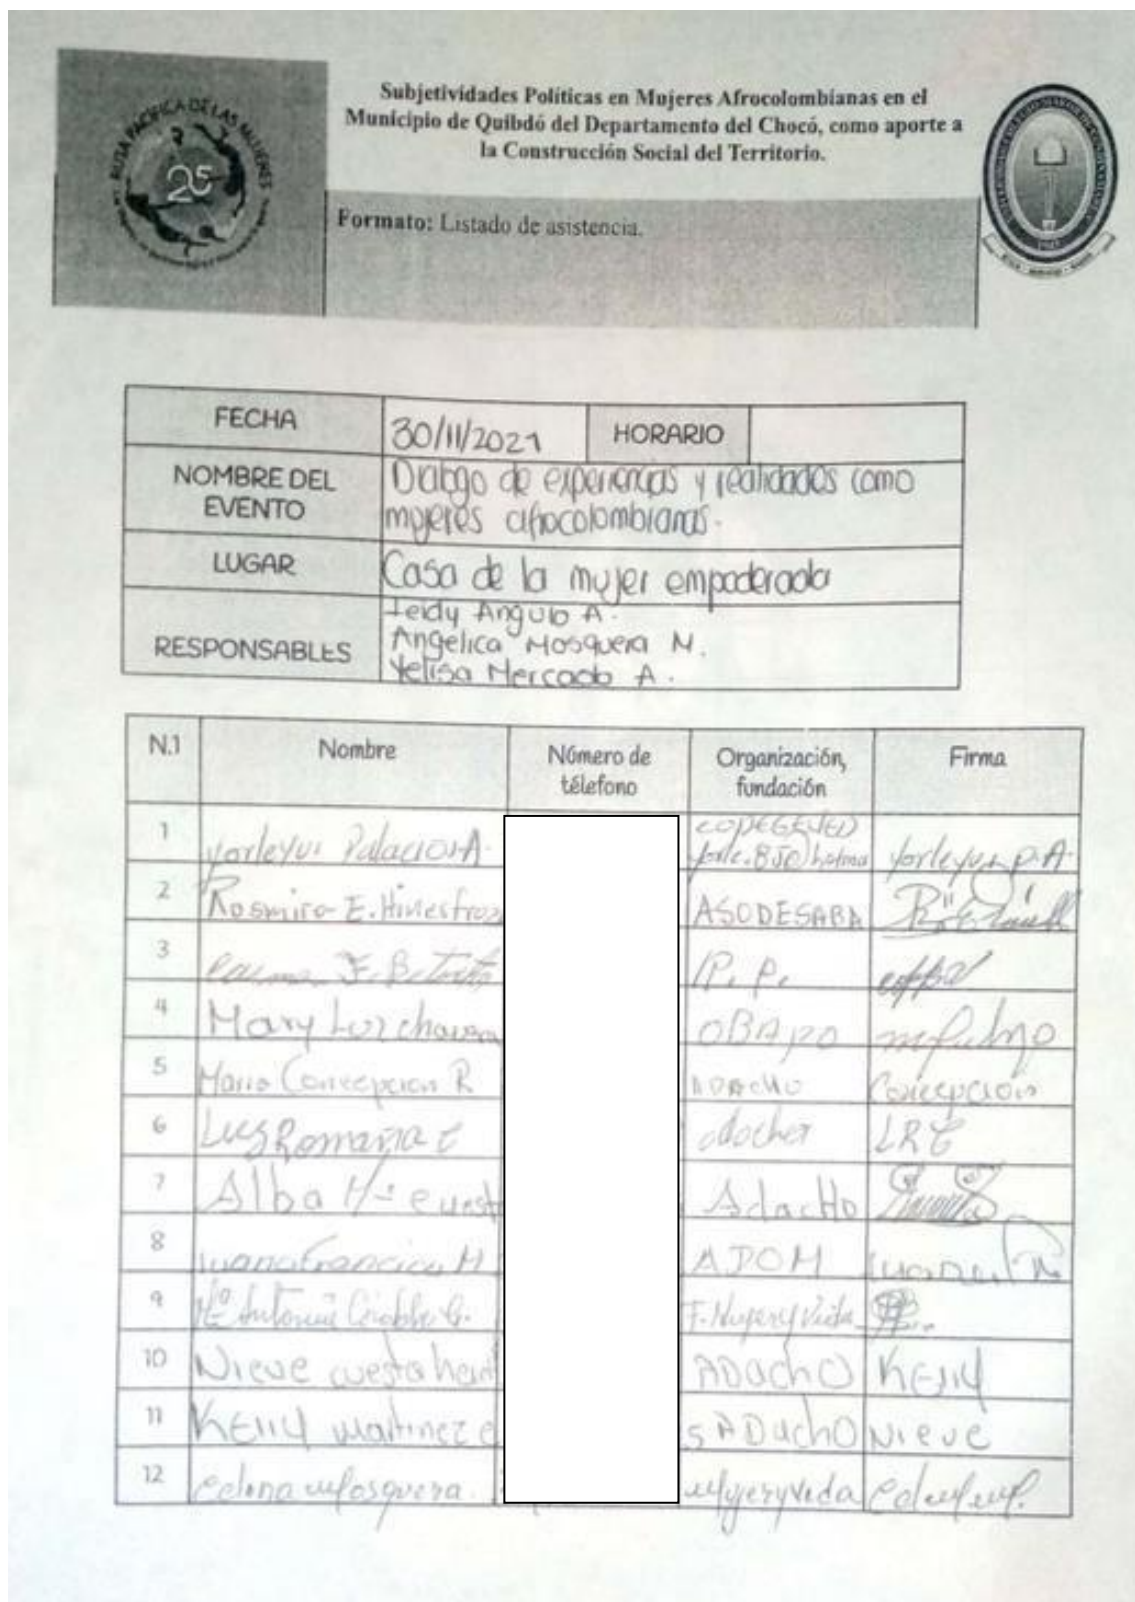 RUTA PACIFICA DE LAS MUJERES
25
Subjetividades Políticas en Mujeres Afrocolombianas en el
Municipio de Quibdó del Departamento del Chocó, como aporte a
la Construcción Social del Territorio.
Formato: Listado de asistencia.
FECHA 30/11/2021 HORARIO
NOMBRE DEL EVENTO Dialogo de experiencias y realidades como
mujeres afrocolombianas.
LUGAR Casa de la mujer empoderada
RESPONSABLES Leidy Angulo A.
Angelica Mosquera M.
Yelisa Mercado A.
N.1 Nombre Número de télefono Organización, fundación Firma
1 Yorleyui Palacios A.
2 Rosmira E. Hinestroza ASODESABA
3 P.P.
4 Mary Luz chavera OBAPO
5 Maria Concepcion R ADACHO Concepcion
6 Luz Romaña C LRC
7 Alba Mª cuest Adacho
8 Juana francisca M ADOM
9 Mª Antonia F. Mujer y Vida
10 Nieve cuesta ADacho Kelly
11 Kelly martinez c ADacho Nieve
12 mosquera mujer y vida